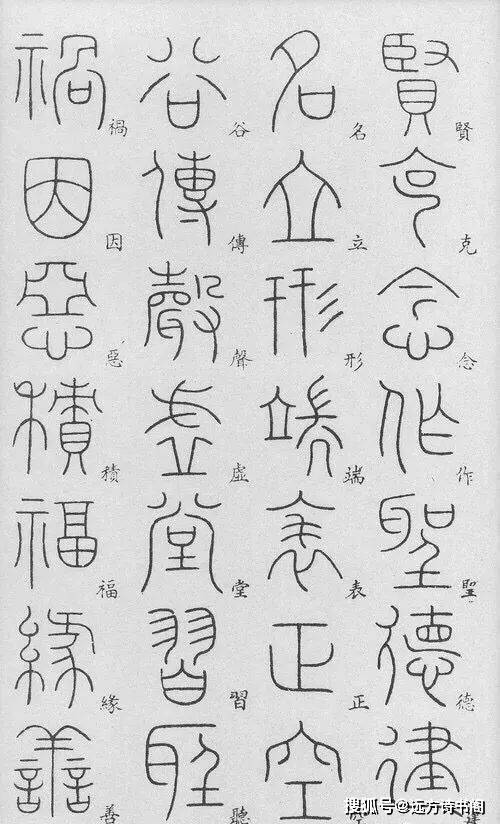 賢克念作聖德建
名立形端表正空
谷傳聲虛堂習聽
禍因惡積福緣善
搜狐号@远方诗书阁